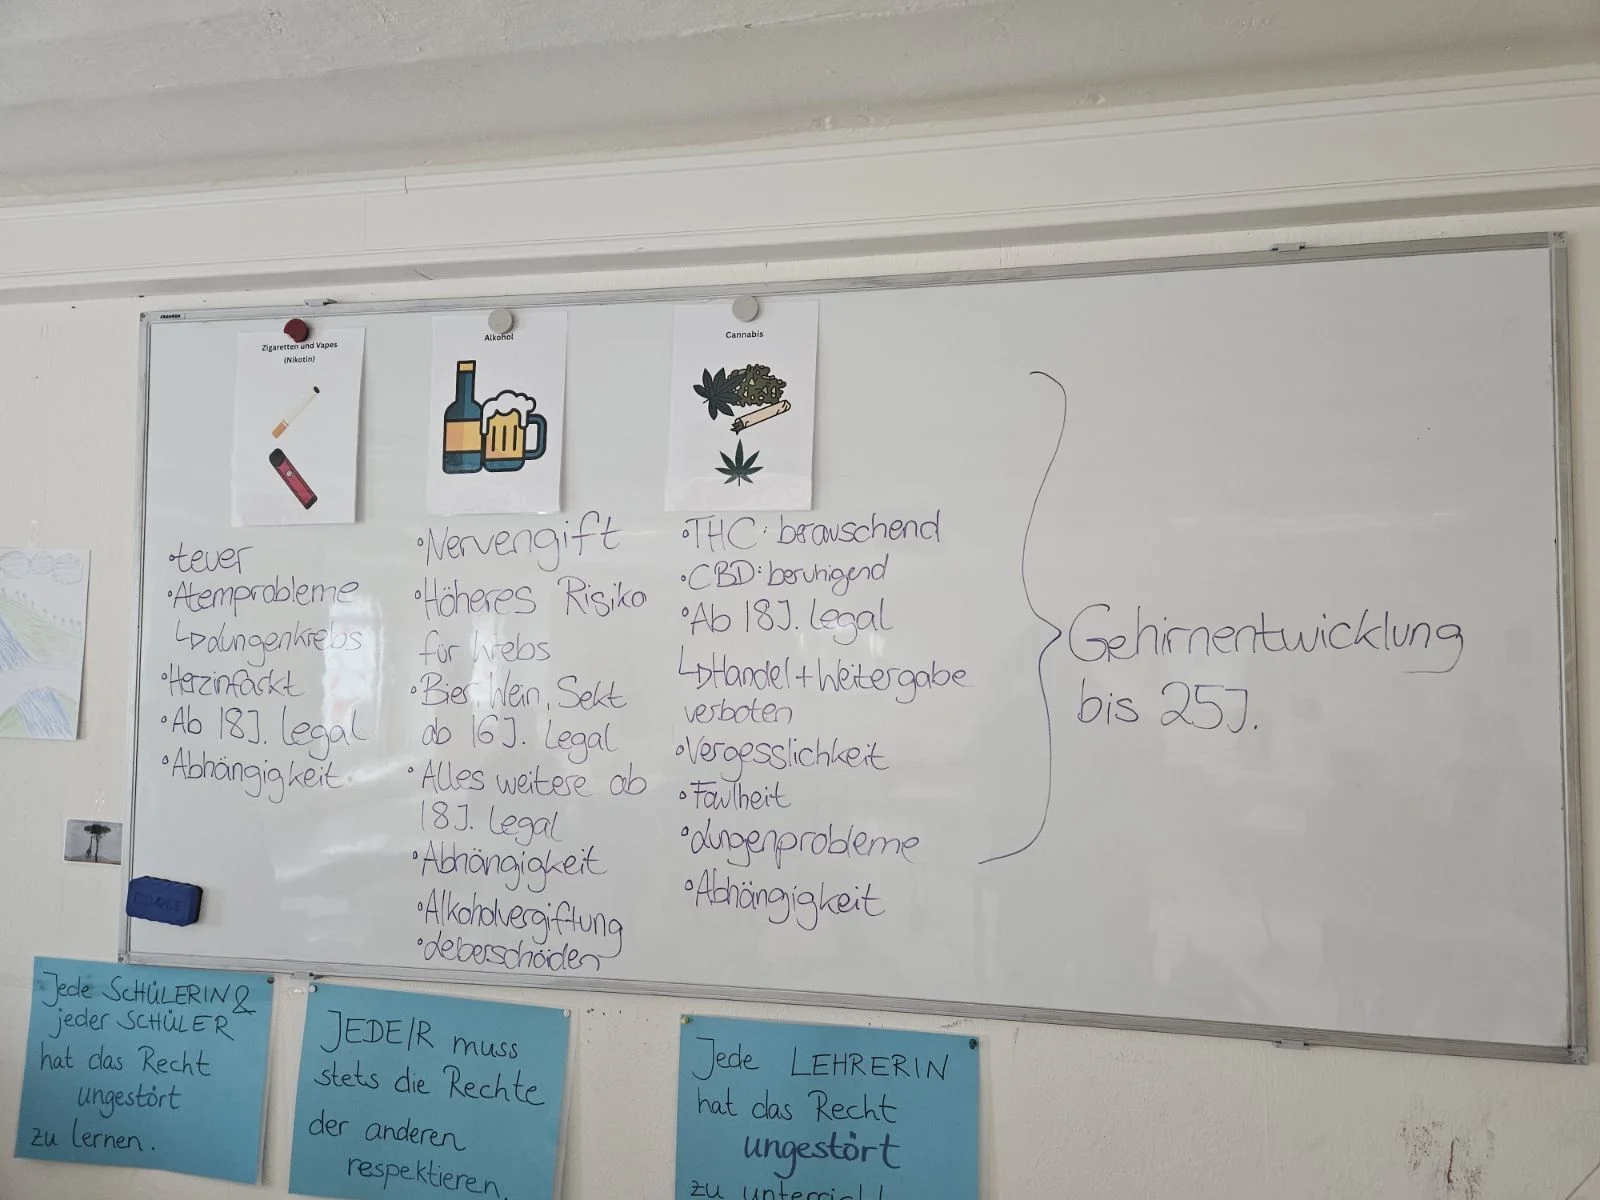 FRANKEN
Zigaretten und Vapes
(Nikotin)
• teuer
• Atemprobleme
↳ Lungenkrebs
• Herzinfarkt
• Ab 18J. legal
• Abhängigkeit
Alkohol
• Nervengift
• Höheres Risiko
für Krebs
• Bier, Wein, Sekt
ab 16J. legal
• Alles weitere ab
18J. legal
• Abhängigkeit
• Alkoholvergiftung
• Leberschäden
Cannabis
• THC: berauschend
• CBD: beruhigend
• Ab 18J. legal
↳ Handel + Weitergabe
verboten
• Vergesslichkeit
• Faulheit
• Lungenprobleme
• Abhängigkeit
Gehirnentwicklung
bis 25J.
Jede SCHÜLERIN &
jeder SCHÜLER
hat das Recht
ungestört
zu lernen.
JEDE/R muss
stets die Rechte
der anderen
respektieren.
Jede LEHRERIN
hat das Recht
ungestört
zu